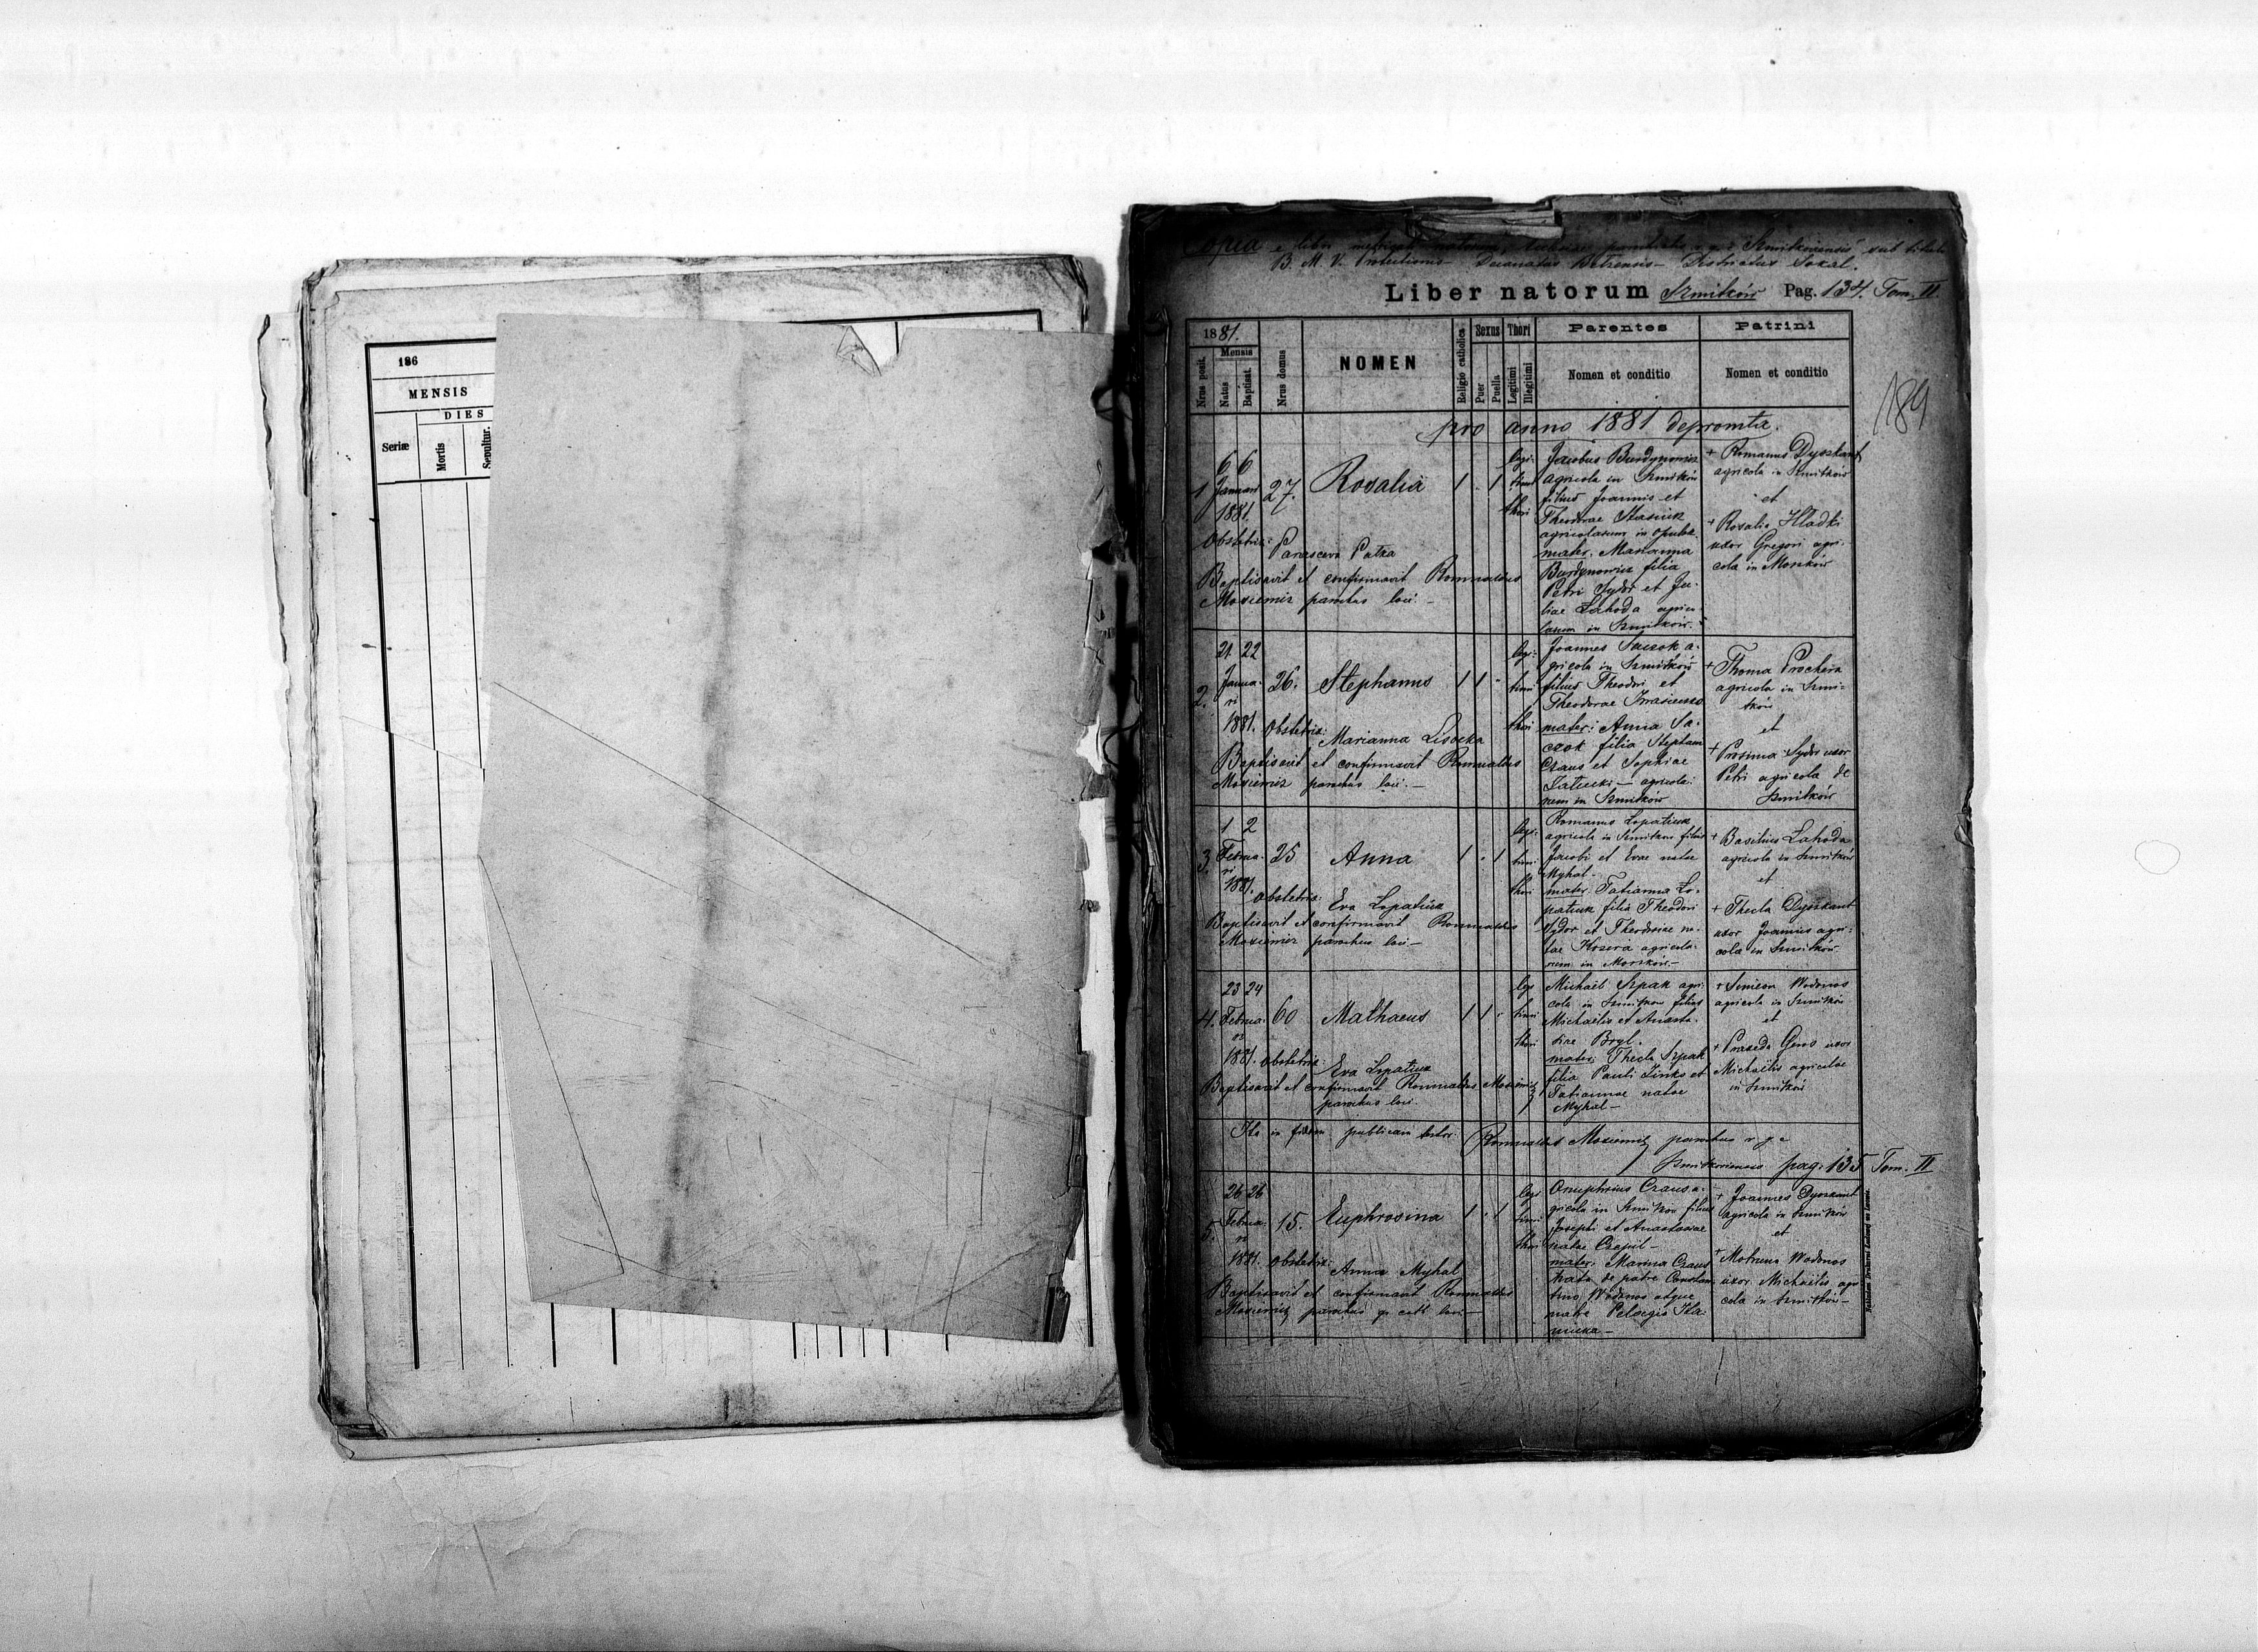 186
MENSIS
DIES
Seriæ
Mortis
Sepultur.
Copia e libro natorum sub titulo
B. M. V. Protectionis Decanatus Districtus Sokal.
Liber natorum Szmitków Pag. 134. Tom. II.
1881.
Nrus posit.
Mensis
Natus
Baptisat.
Nrus domus
NOMEN
Religio catholica
Sexus
Puer
Puella
Thori
Legitimi
Illegitimi
Parentes
Nomen et conditio
Patrini
Nomen et conditio
189
pro anno 1881 depromta.
1
6 6
Januari
1881.
27.
Rosalia
1 . 1
legi-
timi
thori
Obstetrix: Parasceva Patra
Baptisavit et confirmavit Romualdus
Moxiemir parochus loci. —
Jacobus Burdynowicz
agricola in Szmitków
filius Joannis et
Theodorae Stasiuk
agricolarum in
mater: Marianna
Burdynowicz filia
Petri Sydor et Ju-
liae Lahoda agrico-
larum in Szmitków.
+ Romanus Dyszkant
agricola in Szmitków
et
+ Rosalia Hladki
uxor Gregori agri-
cola in Morków
2.
21 22
Janua-
ri
1881.
26.
Stephanus
1 1 -
legi-
timi
thori
Obstetrix: Marianna Lisocka
Baptisavit et confirmavit Romualdus
Moxiemir parochus loci. —
Joannes Saczok a-
gricola in Szmitków
filius Theodori et
Theodorae
mater: Anna Sa-
czok filia Stephani
Craus et Sophiae
agricola-
rum in Szmitków
+ Thoma Prochera
agricola in Szmi-
tków
et
+ Sydor uxor
Petri agricola de
Szmitków
3.
1 2
Februa-
ri
1881.
25
Anna
1 . 1
legi-
timi
thori
Obstetrix: Eva Lopatiuk
Baptisavit et confirmavit Romualdus
Moxiemir parochus loci —
Romanus Lopatiuk
agricola in Szmitków filius
Jacobi et Evae natae
Myhal —
mater: Tatianna Lo-
patiuk filia Theodori
Sydor et Theodosiae na-
tae Kosira agricola-
rum in Morków. —
+ Basilius Lahoda
agricola in Szmitków
et
+ Thecla Dyszkant
uxor Joannis agri-
cola in Szmitków
4.
23 24
Februa-
ri
1881.
60
Mathaeus
1 1 .
legi
timi
thori
Obstetrix: Eva Lopatiuk
Baptisavit et confirmavit Romualdus Moxiemir
parochus loci.
Michael Szpak agri-
cola in Szmitków filius
Michaelis et Anasta-
siae Bryl.
mater: Thecla Szpak
filia Pauli Zinko et
Tatiannae natae
Myhal —
+ Simeon Wodonos
agricola in Szmitków
et
+ Praxeda Gens uxor
Michaëlis agricolae
in Szmitków
Ita in fidem publicam testor Romualdus Moxiemir parochus r. g. c.
Szmitkoviensis pag. 135 Tom. II
5.
26 26
Februa-
ri
1881.
15.
Euphrosina
1 . 1
legi
timi
thori
Obstetrix: Anna Myhal
Baptisavit et confirmavit Romualdus
Moxiemir parochus gr. cath. loci —
Onuphrius Craus a-
gricola in Szmitków filius
Josephi et Anastasiae
natae —
mater: Marina Craus
nata de patre Constan-
tino Wodonos atque
matre Pelagia Ha-
+ Joannes Dyszkant
agricola in Szmitków
et
+ Motruna Wodonos
uxor Michaëlis agri
cola in Szmitków —